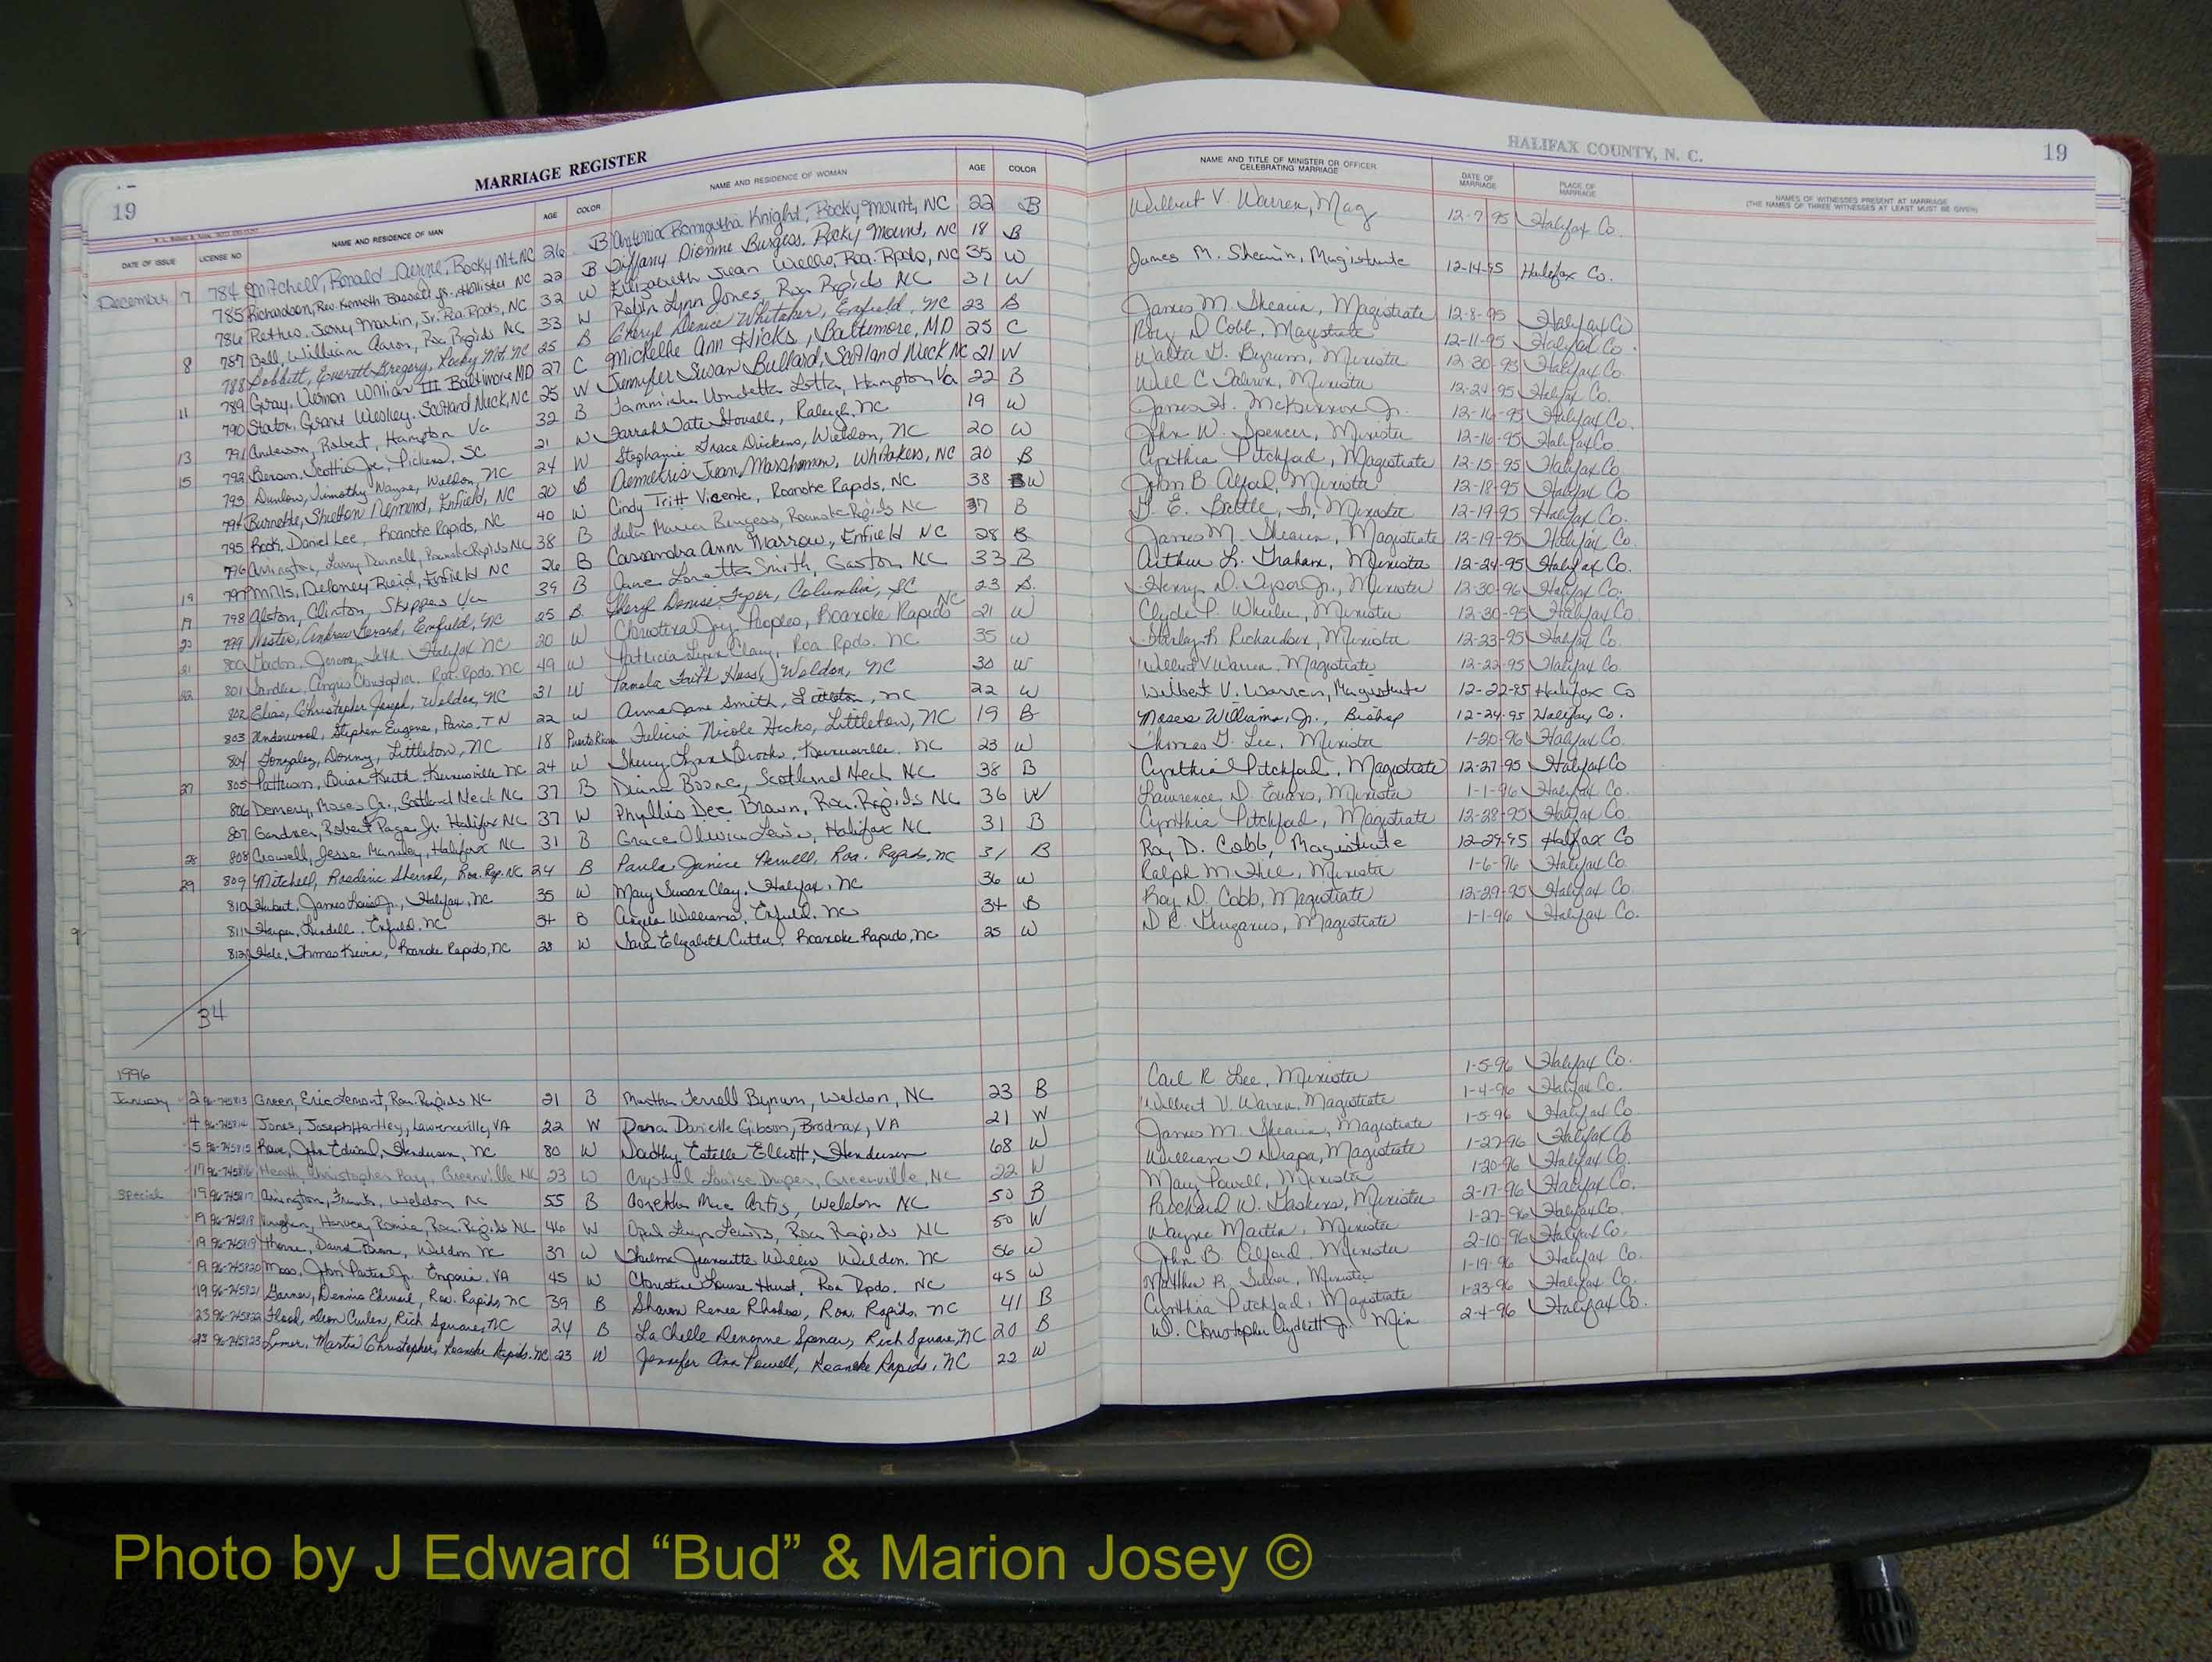 MARRIAGE REGISTER
HALIFAX COUNTY, N. C.
19
19
DATE OF ISSUE LICENSE NO. NAME AND RESIDENCE OF MAN AGE COLOR NAME AND RESIDENCE OF WOMAN AGE COLOR NAME AND TITLE OF MINISTER OR OFFICER CELEBRATING MARRIAGE DATE OF MARRIAGE PLACE OF MARRIAGE NAMES OF WITNESSES PRESENT AT MARRIAGE (THE NAMES OF THREE WITNESSES AT LEAST MUST BE GIVEN)
December 7 784 Mitchell, Ronald Rocky Mt. NC 26 B Knight, Rocky Mount, NC 22 B Wilbert V. Warren, Mag 12-7-95 Halifax Co.
785 Richardson, Rev. Kenneth Jr. Hollister NC 22 B Tiffany Dionne Burgess, Rocky Mount, NC 18 B James M. Shearin, Magistrate 12-14-95 Halifax Co.
786 Jerry Martin, Jr. Roa. Rpds, NC 32 W Elizabeth Jean Roa. Rpds, NC 35 W
8 787 Bell, William Aaron, Roa. Rapids NC 33 W Robin Lynn Jones, Roa Rapids NC 31 W James M. Shearin, Magistrate 12-8-95 Halifax Co
788 Bobbitt, Everett Gregory, Rocky Mt. NC 25 B Cheryl Denice Whitaker, Enfield, NC 23 B Roy D Cobb, Magistrate 12-11-95 Halifax Co.
11 789 Gray, Vernon William III Baltimore MD 27 C Michelle Ann Hicks, Baltimore, MD 25 C Walter Bynum, Minister 12-30-95 Halifax Co.
790 Staton, Grant Wesley, Scotland Neck, NC 25 W Jennifer Susan Bullard, Scotland Neck NC 21 W Will C Minister 12-24-95 Halifax Co.
13 791 Anderson, Robert, Hampton Va 32 B Hampton Va 22 B James H. McKinnon Jr. 12-16-95 Halifax Co.
15 792 Scottie Joe, Pickens, SC 21 W Farrah Tate Stovall, Raleigh, NC 19 W John W. Spencer, Minister 12-16-95 Halifax Co
793 Dunlow, Timothy Wayne, Weldon, NC 24 W Stephanie Grace Dickens, Weldon, NC 20 W Cynthia Pitchford, Magistrate 12-15-95 Halifax Co.
794 Burnette, Shelton Enfield, NC 20 B Demetris Jean Marshman, Whitakers, NC 20 B John B Alford, Minister 12-18-95 Halifax Co
795 Rook, Daniel Lee, Roanoke Rapids, NC 40 W Cindy Tritt Vicente, Roanoke Rapids, NC 38 W E. Battle, Sr, Minister 12-19-95 Halifax Co.
796 Arrington, Larry Darnell, Roanoke Rapids NC 38 B Lula Maria Burgess, Roanoke Rapids NC 37 B James M. Shearin, Magistrate 12-19-95 Halifax Co.
19 797 Mills, Deloney Reid, Enfield NC 26 B Cassandra Ann Marrow, Enfield NC 28 B Arthur L. Graham, Minister 12-24-95 Halifax Co.
19 798 Alston, Clinton, Skippers Va 39 B Jane Loretta Smith, Gaston NC 33 B Henry D. Tyson Jr., Minister 12-30-96 Halifax Co.
20 799 Wester, Andrew Gerard, Enfield, NC 25 B Sheryl Denise Columbia, SC 23 B Clyde P. Wheeler, Minister 12-30-95 Halifax Co
21 800 Jeremy Halifax NC 20 W Christina Joy Peoples, Roanoke Rapids NC 21 W Richardson, Minister 12-23-95 Halifax Co.
22 801 Angus Christopher, Roa. Rpds. NC 49 W Patricia Lynn Clary, Roa Rpds. NC 35 W Wilbert V Warren, Magistrate 12-22-95 Halifax Co.
802 Elias, Christopher Joseph, Weldon, NC 31 W Pamela Weldon, NC 30 W Wilbert V. Warren, Magistrate 12-22-95 Halifax Co
803 Underwood, Stephen Eugene, Paris, TN 22 W Anna Jane Smith, Littleton, NC 22 W Moses Williams, Jr., Bishop 12-24-95 Halifax Co.
804 Gonzalez, Donny, Littleton, NC 18 Puerto Rican Felicia Nicole Hicks, Littleton, NC 19 B Thomas G. Lee, Minister 1-20-96 Halifax Co.
27 805 Patterson, Brian Keith Kernersville NC 24 W Sherry Lynn Brooks, Kernersville, NC 23 W Cynthia Pitchford, Magistrate 12-27-95 Halifax Co
806 Demery, Moses Jr., Scotland Neck NC 37 B Diane Boone, Scotland Neck NC 38 B Lawrence D. Evans, Minister 1-1-96 Halifax Co.
807 Gardner, Robert Page Jr. Halifax NC 37 W Phyllis Dee Brown, Roa. Rapids NC 36 W Cynthia Pitchford, Magistrate 12-28-95 Halifax Co
28 808 Crowell, Jesse Manley, Halifax NC 31 B Grace Olivia Lewis, Halifax NC 31 B Roy D. Cobb, Magistrate 12-29-95 Halifax Co
29 809 Mitchell, Roderic Sherrod, Roa. Rap. NC 24 B Paula Janice Roa. Rapids, NC 31 B Ralph M. Hill, Minister 1-6-96 Halifax Co
810 Hubert, James Louis Jr., Halifax, NC 35 W Mary Susan Clay, Halifax, NC 36 W Roy D. Cobb, Magistrate 12-29-95 Halifax Co
811 Harper, Enfield, NC 34 B Angela Williams, Enfield, NC 34 B D R. Magistrate 1-1-96 Halifax Co.
812 Hale, Thomas Kevin, Roanoke Rapids, NC 28 W Sara Elizabeth Cutler, Roanoke Rapids, NC 25 W
34
1996
January 2 96-745813 Green, Eric Lamont, Roa. Rapids NC 21 B Terrell Bynum, Weldon, NC 23 B Carl R Lee, Minister 1-5-96 Halifax Co.
4 96-745814 Jones, Joseph Hartley, Lawrenceville, VA 22 W Dana Danielle Gibson, Brodnax, VA 21 W Wilbert V. Warren, Magistrate 1-4-96 Halifax Co.
5 96-745815 John Edward, Henderson, NC 80 W Estelle Elliott, Henderson 68 W James M. Shearin, Magistrate 1-5-96 Halifax Co
17 96-745816 Heath, Christopher Ray, Greenville NC 23 W Crystal Louise Draper, Greenville, NC 22 W William Magistrate 1-27-96 Halifax Co
Special 19 96-745817 Arrington, Frank, Weldon NC 55 B Mae Artis, Weldon NC 50 B Mary Powell, Minister 1-20-96 Halifax Co.
19 96-745818 Vaughan, Harvey Roa. Rapids NC 46 W Opal Lynn Lewis, Roa Rapids NC 50 W Richard W. Gaskins, Minister 2-17-96 Halifax Co.
19 96-745819 Thorne, David Weldon NC 37 W Thelma Jeanette Willis Weldon, NC 56 W Wayne Martin, Minister 1-27-96 Halifax Co.
19 96-745820 Moss, John Jr. Emporia, VA 45 W Christine Louise Hurst, Roa Rpds. NC 45 W John B. Alford, Minister 2-10-96 Halifax Co.
19 96-745821 Garner, Dennis Edward, Roa. Rapids, NC 39 B Sharon Renee Rhodes, Roa. Rapids, NC 41 B Matthew R. Minister 1-19-96 Halifax Co.
23 96-745822 Flood, Rich Square, NC 24 B LaChelle Spencer, Rich Square, NC 20 B Cynthia Pitchford, Magistrate 1-23-96 Halifax Co.
23 96-745823 Limer, Martin Christopher, Roanoke Rapids, NC 23 W Jennifer Ann Powell, Roanoke Rapids, NC 22 W W. Christopher Aydlett Jr. Min 2-4-96 Halifax Co.
Photo by J Edward “Bud” & Marion Josey ©